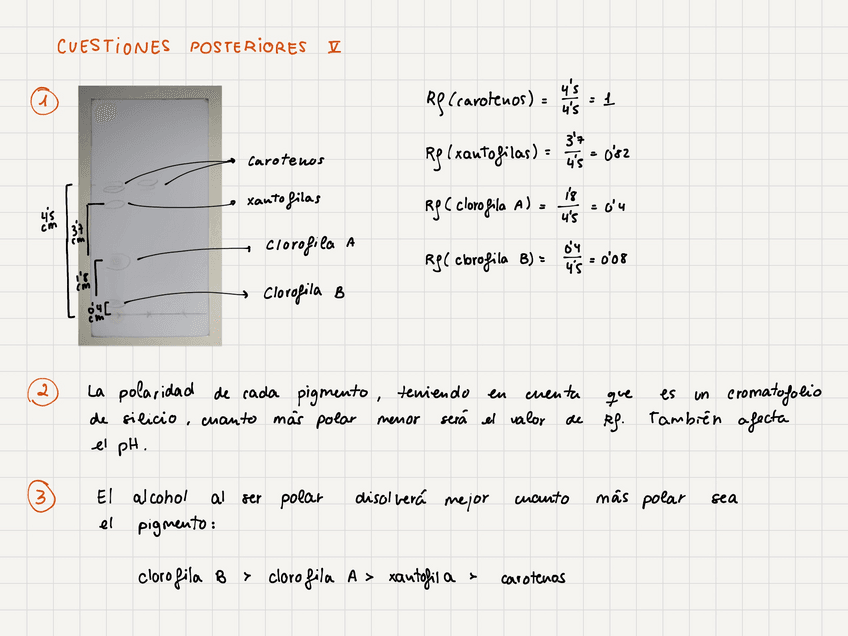 CUESTIONES POSTERIORES V
1
carotenos
xantofilas
Clorofila A
Clorofila B
4'5 cm
3'7 cm
1'8 cm
0'4 cm
Rf (carotenos) = 4'5 / 4'5 = 1
Rf (xantofilas) = 3'7 / 4'5 = 0'82
Rf ( clorofila A) = 1'8 / 4'5 = 0'4
Rf ( clorofila B) = 0'4 / 4'5 = 0'08
2 La polaridad de cada pigmento, teniendo en cuenta que es un cromatofolio
de silicio, cuanto más polar menor será el valor de Rf. También afecta
el pH.
3 El alcohol al ser polar disolverá mejor cuanto más polar sea
el pigmento:
clorofila B > clorofila A > xantofila > carotenos